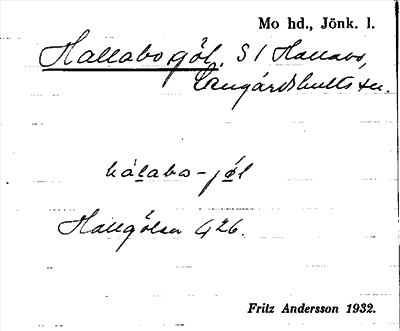 Mo hd., Jönk. l.
Hallabo göl. S I Hallabo,
Långårdshults sn.
hálabo-jǿl
Hallgölen 426.
Fritz Andersson 1932.